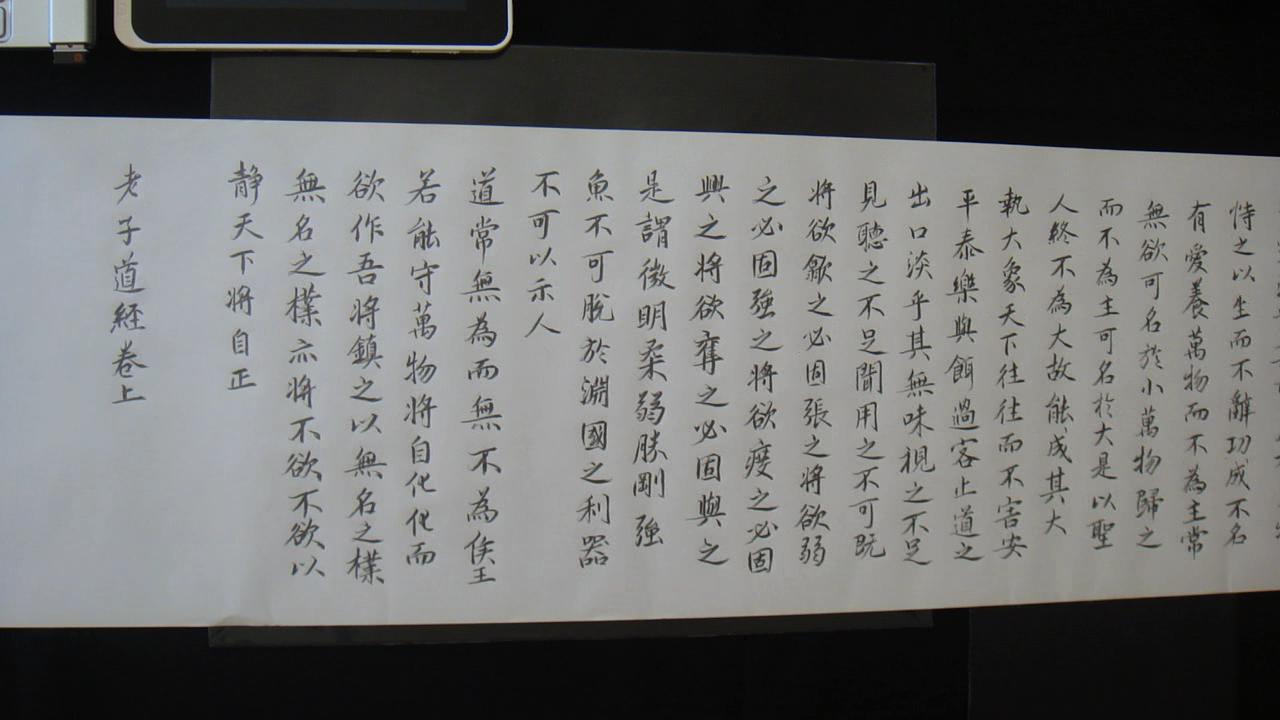 恃之以生而不辭功成不名
有愛養萬物而不為主常
無欲可名於小萬物歸之
而不為主可名於大是以聖
人終不為大故能成其大
執大象天下往往而不害安
平泰樂與餌過客止道之
出口淡乎其無味視之不足
見聽之不足聞用之不可既
將欲歙之必固張之將欲弱
之必固強之將欲廢之必固
興之將欲奪之必固與之
是謂微明柔弱勝剛強
魚不可脫於淵國之利器
不可以示人
道常無為而無不為侯王
若能守萬物將自化化而
欲作吾將鎮之以無名之樸
無名之樸亦將不欲不欲以
靜天下將自正
老子道經卷上